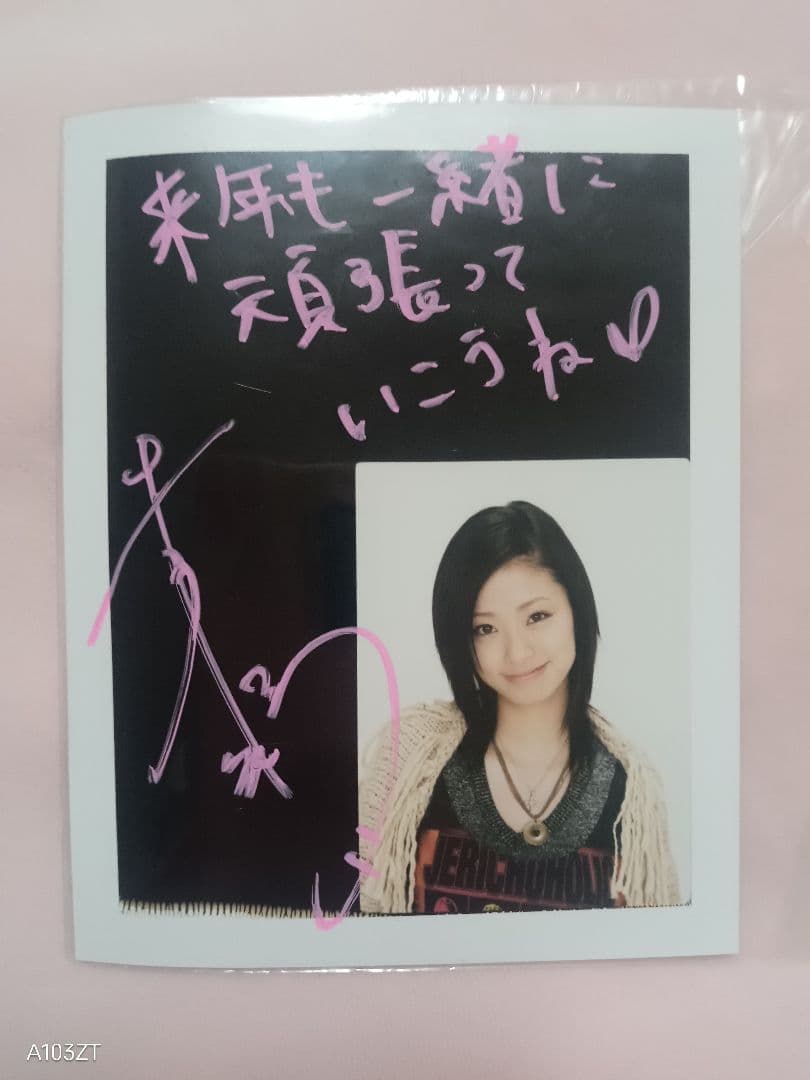 来年も一緒に
頑張って
いこうね♡
JERICHOHOLI
A103ZT